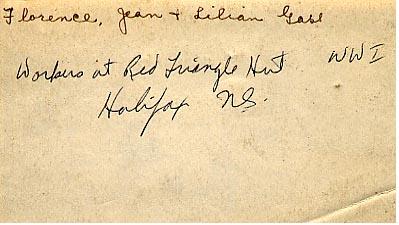 Florence, Jean + Lilian
Workers at Red Triangle Hut WWI
Halifax NS.